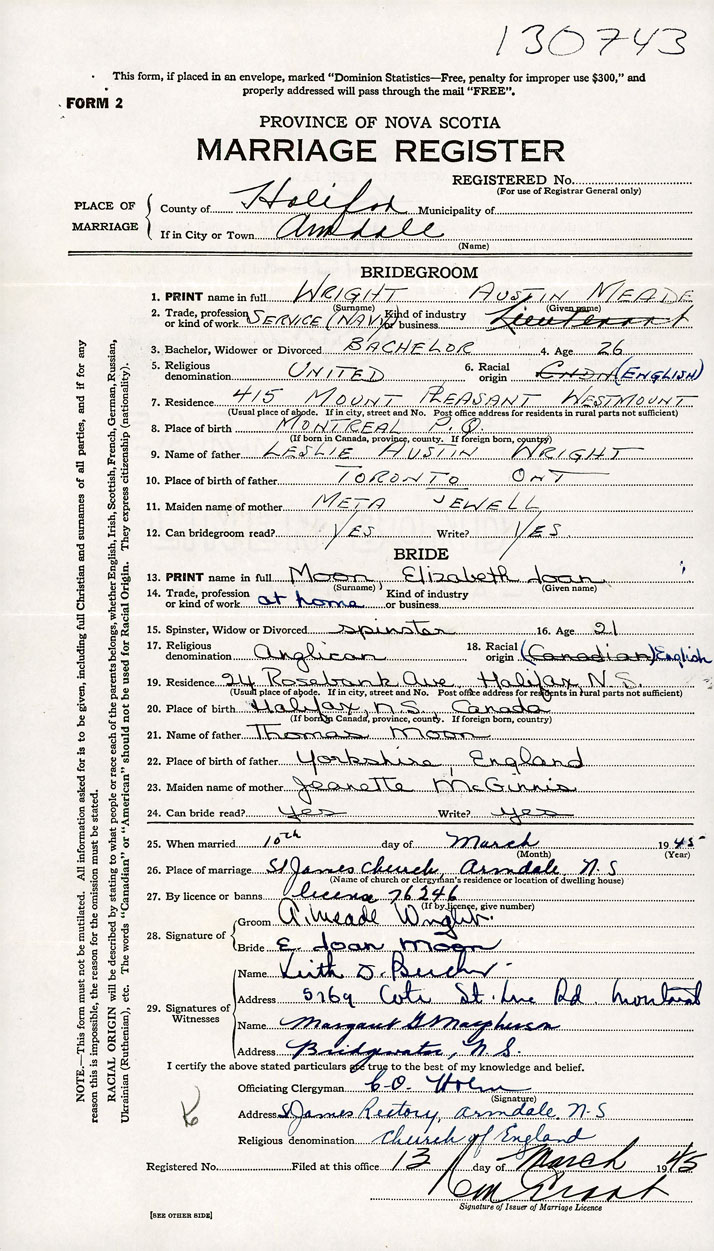 130743
This form, if placed in an envelope, marked "Dominion Statistics—Free, penalty for improper use $300," and
properly addressed will pass through the mail "FREE".
FORM 2
PROVINCE OF NOVA SCOTIA
MARRIAGE REGISTER
REGISTERED No.
(For use of Registrar General only)
PLACE OF MARRIAGE
County of Halifax Municipality of
If in City or Town Armdale
(Name)
BRIDEGROOM
1. PRINT name in full WRIGHT AUSTIN MEADE
(Surname) (Given name)
2. Trade, profession or kind of work SERVICE (NAVY) Kind of industry or business Lieutenant
3. Bachelor, Widower or Divorced BACHELOR 4. Age 26
5. Religious denomination UNITED 6. Racial origin CNDN (ENGLISH)
7. Residence 415 MOUNT PLEASANT WESTMOUNT
(Usual place of abode. If in city, street and No. Post office address for residents in rural parts not sufficient)
8. Place of birth MONTREAL P.Q.
(If born in Canada, province, county. If foreign born, country)
9. Name of father LESLIE AUSTIN WRIGHT
10. Place of birth of father TORONTO ONT
11. Maiden name of mother META JEWELL
12. Can bridegroom read? YES Write? YES.
BRIDE
13. PRINT name in full Moon, Elizabeth Joan
(Surname) (Given name)
14. Trade, profession or kind of work at home Kind of industry or business
15. Spinster, Widow or Divorced spinster 16. Age 21
17. Religious denomination Anglican 18. Racial origin (Canadian) English
19. Residence 24 Rosebank Ave, Halifax, N.S.
(Usual place of abode. If in city, street and No. Post office address for residents in rural parts not sufficient)
20. Place of birth Halifax, N.S. Canada
(If born in Canada, province, county. If foreign born, country)
21. Name of father Thomas Moon
22. Place of birth of father Yorkshire, England
23. Maiden name of mother Jeanette McGinnis
24. Can bride read? yes Write? yes
25. When married 10th day of March 1945
(Month) (Year)
26. Place of marriage St James Church, Armdale, N.S
(Name of church or clergyman's residence or location of dwelling house)
27. By licence or banns licence 76246
(If by licence, give number)
28. Signature of
Groom A. Meade Wright.
Bride E. Joan Moon
29. Signatures of Witnesses
Name Keith D.
Address 5769 Cote St. Luc Rd. Montreal
Name Margaret G Macpherson
Address Bridgewater, N.S.
I certify the above stated particulars are true to the best of my knowledge and belief.
Officiating Clergyman C.O.
(Signature)
Address St James Rectory, Armdale, N.S
Religious denomination Church of England
Registered No. Filed at this office 13 day of March 1945
Grant
Signature of Issuer of Marriage Licence
[SEE OTHER SIDE]
NOTE.—This form must not be mutilated. All information asked for is to be given, including full Christian and surnames of all parties, and if for any
reason this is impossible, the reason for the omission must be stated.
RACIAL ORIGIN will be described by stating to what people or race each of the parents belongs, whether English, Irish, Scottish, French, German, Russian,
Ukrainian (Ruthenian), etc. The words "Canadian" or "American" should not be used for Racial Origin. They express citizenship (nationality).